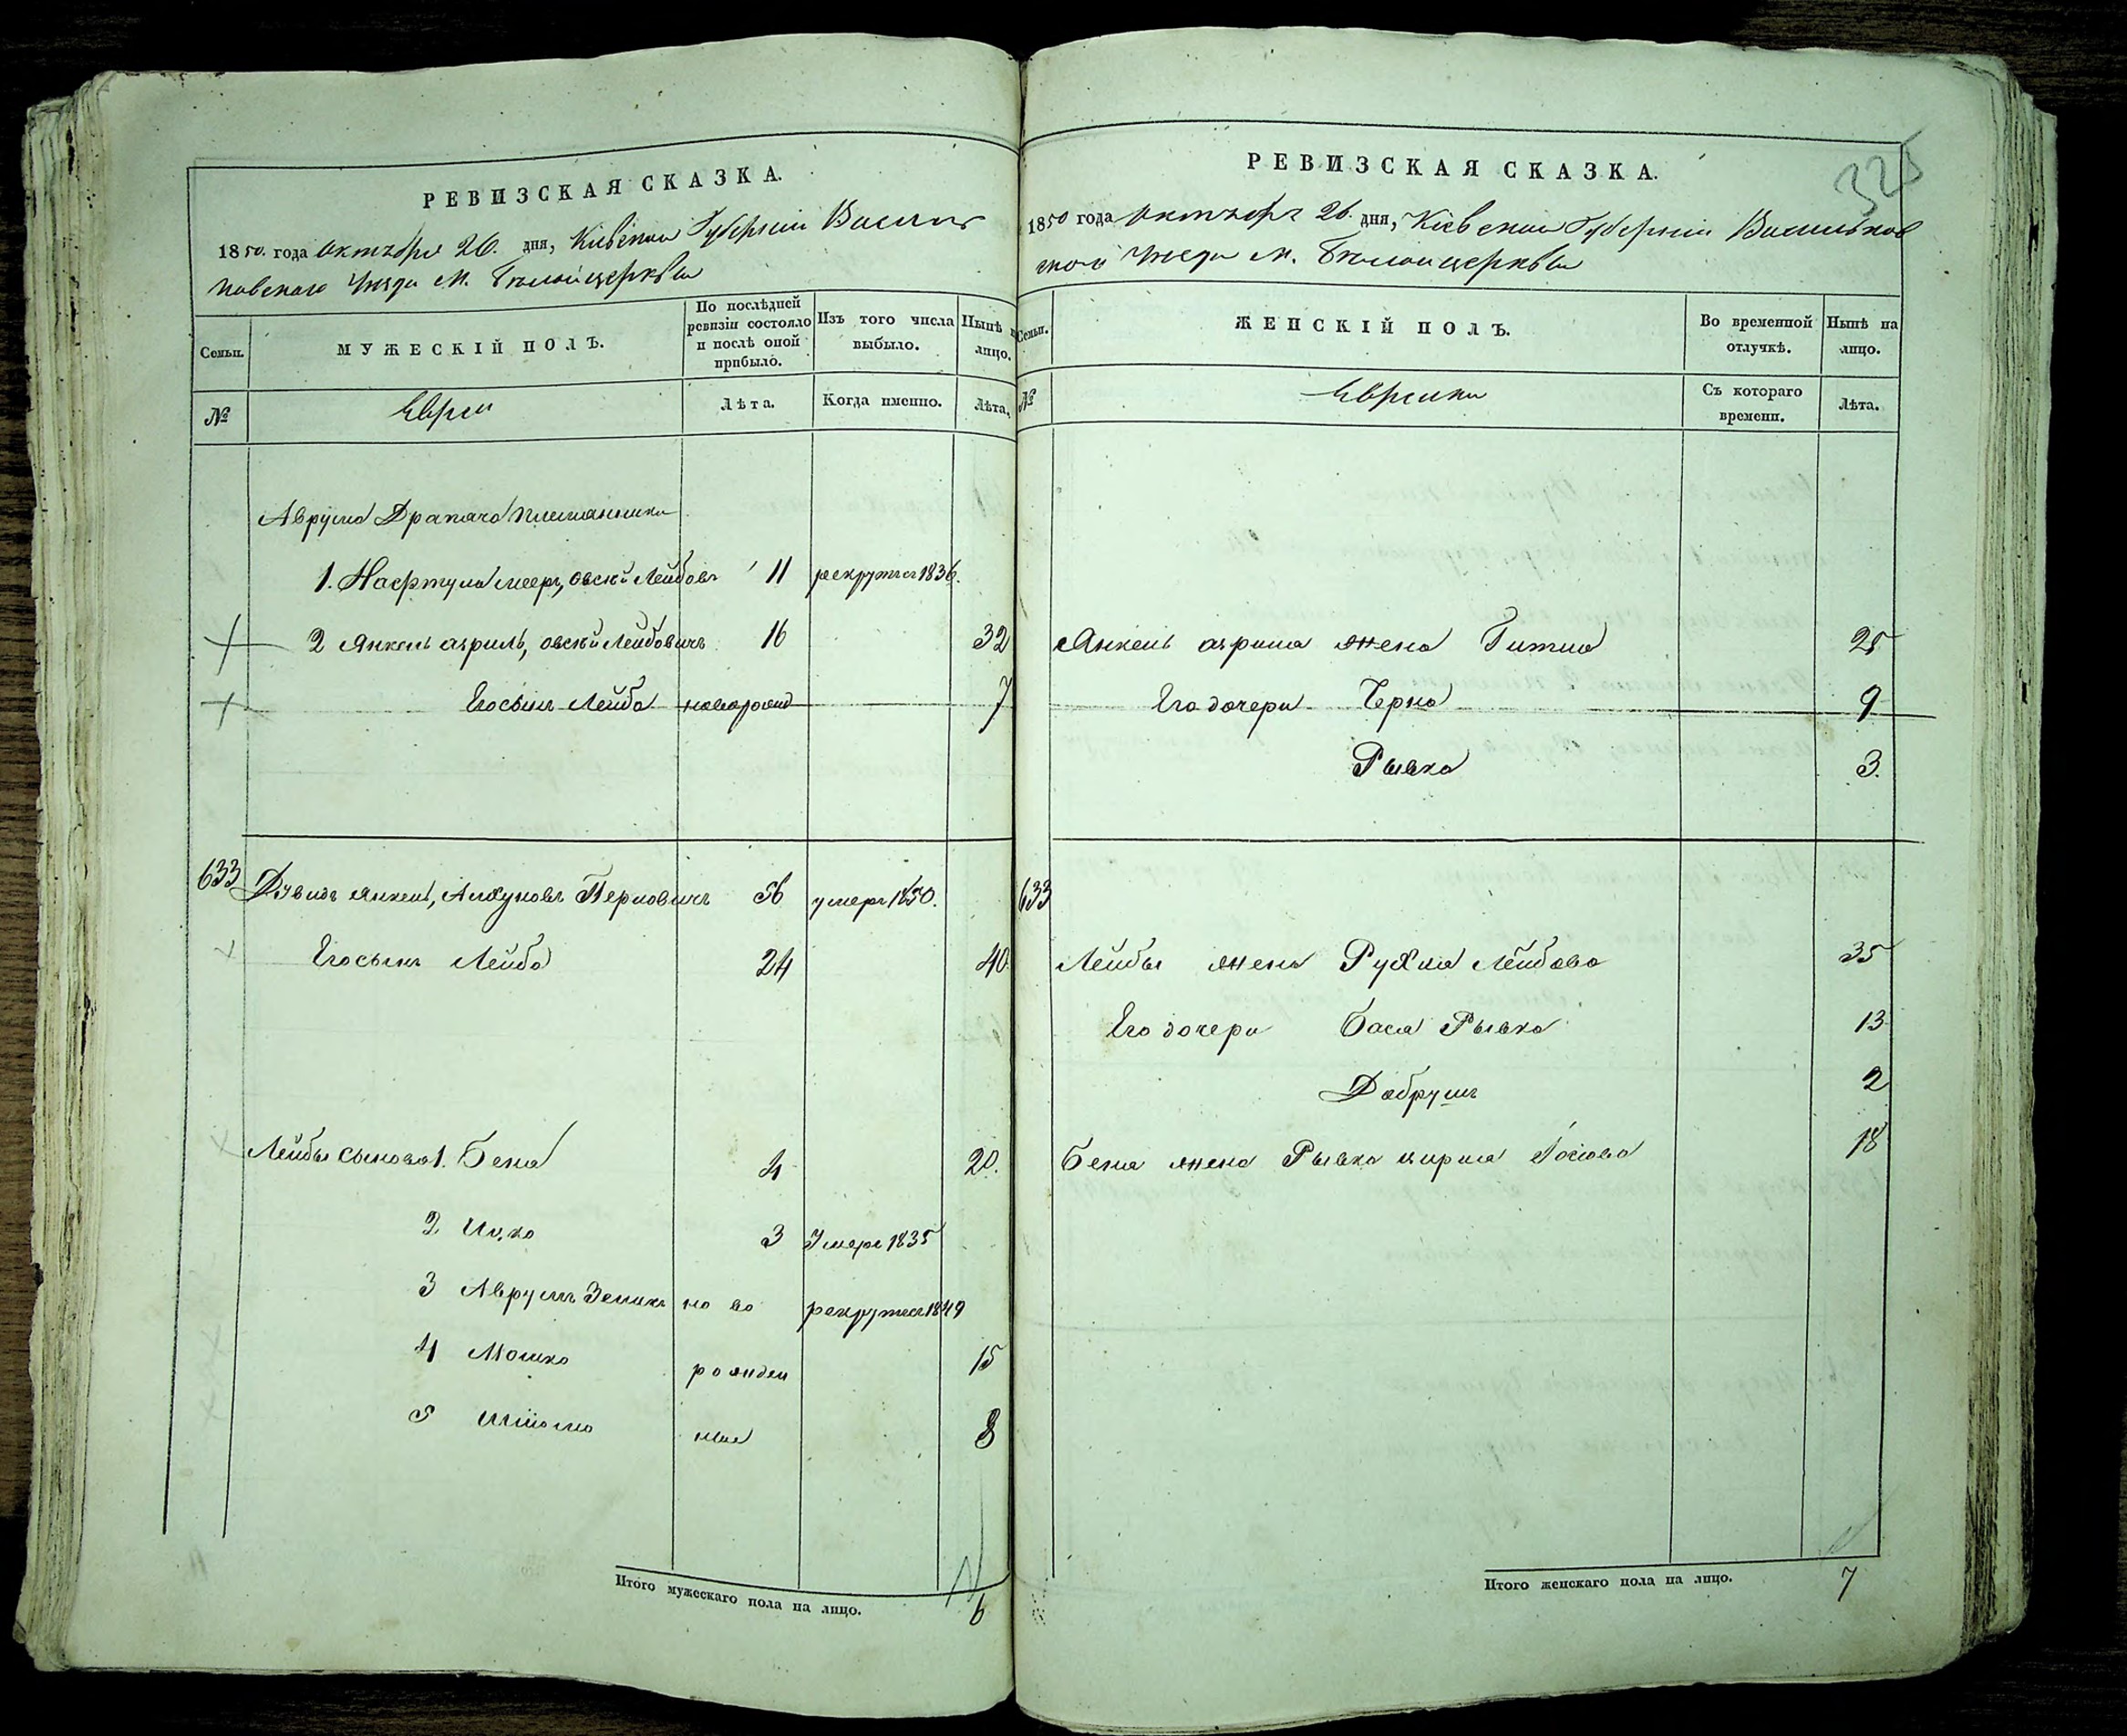 РЕВИЗСКАЯ СКАЗКА.
1850. года октября 26. дня, Кіевской Губерніи Василь
ковского уезда м. Белойцерквы
Семьи.
МУЖЕСКІЙ ПОЛЪ.
По послѣдней ревизіи состояло и послѣ оной прибыло.
Изъ того числа выбыло.
Нынѣ лицо.
№
Евреи
Лѣта.
Когда именно.
Лѣта.
Аврума Драпача племянники
1. Нафтула меер, овскй Лейбовъ 11 рекрутъ 1836.
2 Янкель азриль, овскй Лейбовичъ 16 32
Его сынъ Лейба новорожд 7
633 Дувидъ янкель, Алхуновъ Перловичъ 56 умеръ 1850.
Его сынъ Лейба 24 40
Лейбы сыновя 1. Бена 4 20.
2 Ицко 3 Умеръ 1835
3 Аврумъ Зелик но во рекрутъ 1849
4 Мошко рожден 15
5 Шліома ные 8
Итого мужескаго пола на лицо.
6
РЕВИЗСКАЯ СКАЗКА.
325
1850 года октября 26. дня, Кіевской Губерніи Васильков
ского уезда м. Белойцерквы
Семьи.
ЖЕНСКІЙ ПОЛЪ.
Во временной отлучкѣ.
Нынѣ на лицо.
№
Еврейки
Съ котораго времени.
Лѣта.
Янкель азрила жена Гитла 25
Его дочери Черна 9
Рывка 3.
633
Лейбы жена Рухла Лейбова 35
Его дочери Бася Рывка 13
Добрушъ 2
Бена жена Рывка цирла 18
Итого женскаго пола на лицо.
7